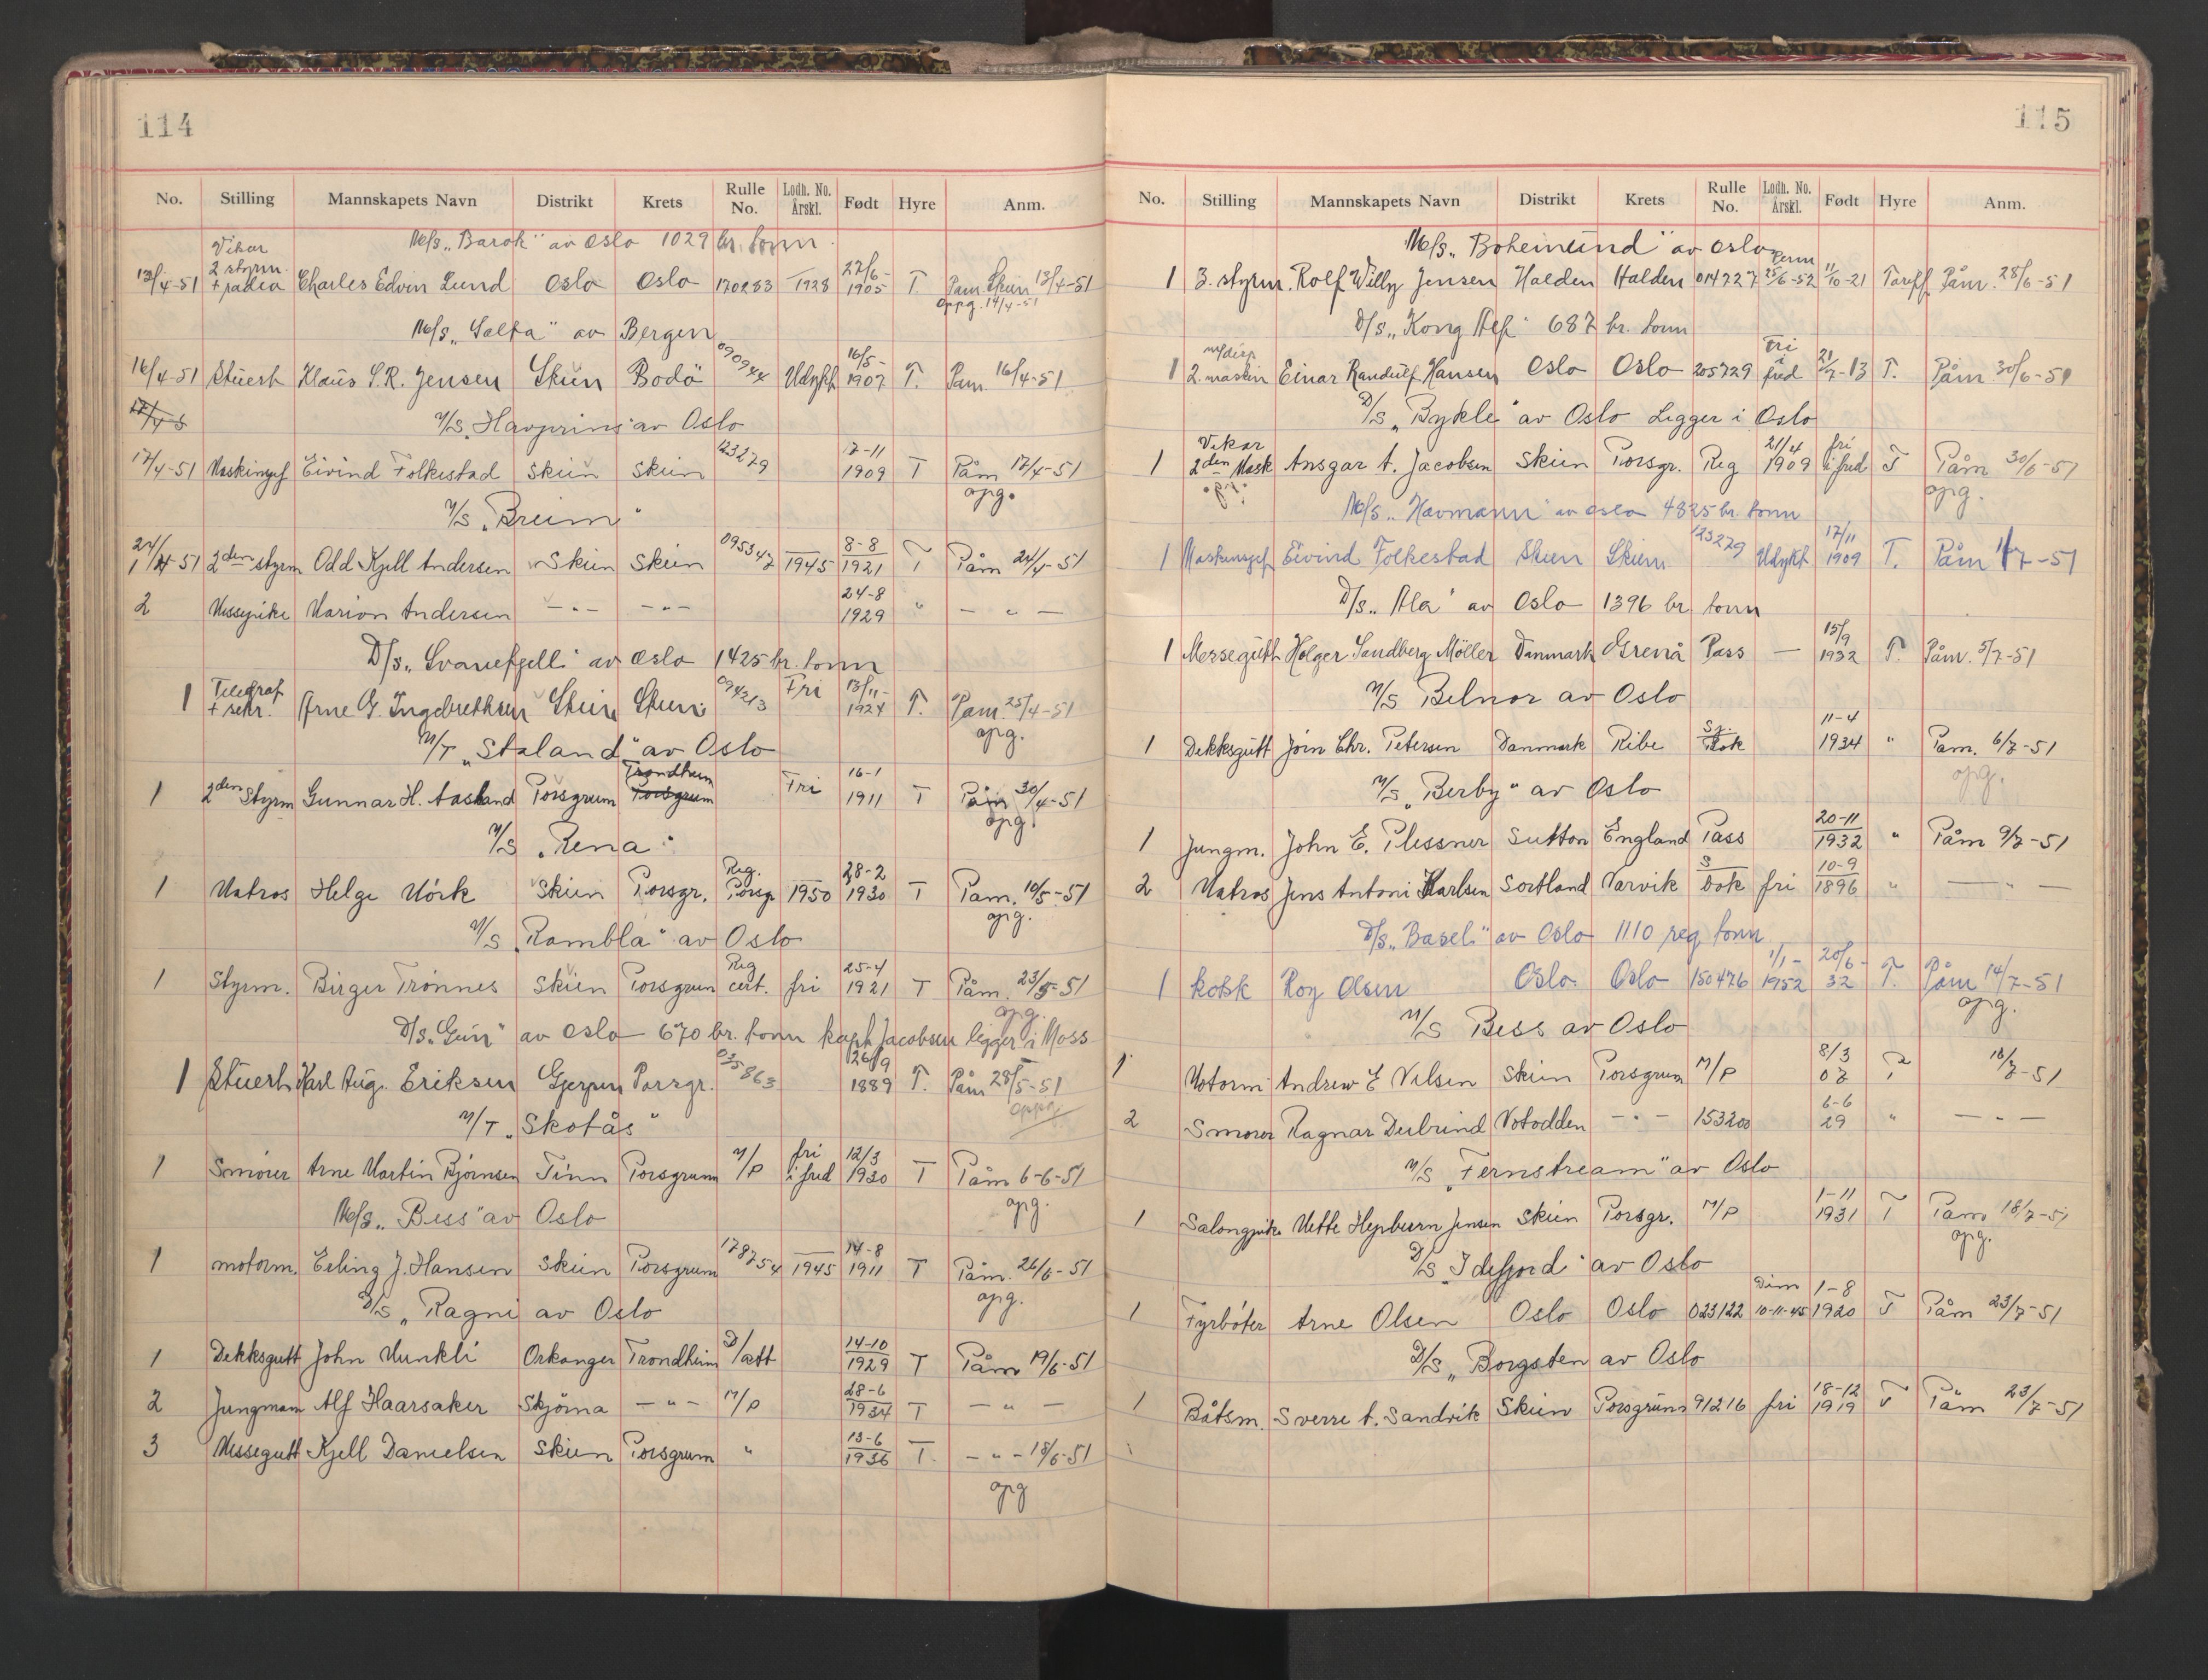 114
No. Stilling Mannskapets Navn Distrikt Krets Rulle No. Lodh. No. Årskl. Født Hyre Anm.
M/s „Barok“ av Oslo 1029 br. tonn
13/4-51 Vikar 2 styrm. + radio Charles Edvin Lund Oslo Oslo 170283 1928 27/6-1905 T. Påm. Skien 13/4-51
oppg. 14/4-51
M/s „Salta“ av Bergen
16/4-51 Stuert Klaus S.R. Jensen Skien Bodö 090944 Utskr 16/5-1907 T. Påm 16/4-51
17/4-5
M/S „Havprins“ av Oslo
17/4-51 Maskinsjef Eivind Folkestad Skien Skien 123279 17-11 1909 T Påm 17/4-51
opg.
M/S „Breim“
24/4-51 1 2den styrm Odd Kjell Andersen Skien Skien 095347 1945 8-8 1921 T Påm 24/4-51
2 Messepike Marion Andersen — „ — — „ — 24-8 1929 “ — “ —
D/s „Svanefjell“ av Oslo 1425 br. tonn
1 Telegraf + sekr. Arne G. Ingebrethsen Skien Skien 094213 Fri 13/11-1924 T. Påm. 25/4-51
opg.
M/T „Staland“ av Oslo
1 2den Styrm Gunnar H. Aasland Porsgrunn Trondheim Porsgrunn Fri 16-1 1911 T Påm 30/4-51
opg.
M/S „Rena“
1 Matros Helge Mörk Skien Porsgr. Reg. Porsgr 1950 28-2 1930 T Påm. 10/5-51
opg.
M/S „Rambla“ av Oslo
1 Styrm. Birger Trönnes Skien Porsgrunn Reg cert. fri 25-4 1921 T Påm. 23/5-51
opg.
D/s „Gun“ av Oslo 670 br. tonn kapt Jacobsen ligger i Moss
1 Stuert Karl Aug. Eriksen Gjerpen Porsgr. 035863 26/9 1889 T. Påm 28/5-51
oppg.
M/T „Skotås“
1 Smörer Arne Martin Björnsen Tinn Porsgrunn M/P fri i fred 12/3 1930 T Påm 6-6-51
opg.
M/s „Bess“ av Oslo
1 motorm. Erling J. Hansen Skien Porsgrunn 178754 1945 14-8 1911 T Påm. 26/6-51
opg.
D/S „Ragni av Oslo
1 Dekksgutt John Munkli Orkanger Trondheim D/att 14-10 1929 T Påm 19/6-51
2 Jungmann Alf Haarsaker Skjörna — “ — M/P 28-6 1934 T — “ —
3 Messegutt Kjell Danielsen Skien Porsgrunn “ 13-6 1936 T. — “ — 18/6-51
opg
115
No. Stilling Mannskapets Navn Distrikt Krets Rulle No. Lodh. No. Årskl. Født Hyre Anm.
M/s „Bohemund“ av Oslo
1 3. styrm. Rolf Willy Jensen Halden Halden 014727 Perm 25/6-52 11/10-21 Tariff Påm. 28/6-51
D/s „Kong Alf“ 687 br. tonn
1 m/disp 2. maskin Einar Randulf Hansen Oslo Oslo 205729 Fri i fred 21/7-13 T. Påm 30/6-51
D/S „Bykle“ av Oslo Ligger i Oslo
1 Vikar 2den Mask Ansgar A. Jacobsen Skien Porsgr. Reg 21/4 1909 fri i fred T Påm 30/6-51
opg.
M/s „Havmann“ av Oslo 4825 br. tonn
1 Maskinsjef Eivind Folkestad Skien Skien 123279 Utskr 17/11 1909 T. Påm 1/7-51
D/s „Ala“ av Oslo 1396 br. tonn
1 Messegutt Holger Sandberg Möller Danmark Grenå Pass — 15/9 1932 T. Påm. 5/7-51
M/S Belnor av Oslo
1 Dekksgutt Jörn Chr. Petersen Danmark Ribe Sj. Bok 11-4 1934 “ Påm. 6/7-51
opg.
M/S „Berby“ av Oslo
1 Jungm. John E. Plessner Sutton England Pass 20-11 1932 “ Påm 9/7-51
2 Matros Jens Antoni Karlsen Sortland Narvik S Bok fri 10-9 1896 “ — “ —
D/s „Basel“ av Oslo 1110 reg tonn
1 kokk Roy Olsen Oslo Oslo 150476 1/1-1952 20/6-32 T. Påm 14/7-51
opg.
M/S Bess av Oslo
1 Motorm Andrew E Nilsen Skien Porsgrunn M/P 8/3 07 T 18/7-51
2 Smörer Ragnar Notodden — “ — 153200 6-6 29 “ — “ —
M/S „Fernstream“ av Oslo
1 Salongpike Mette Jensen Skien Porsgr. M/P 1-11 1931 T Påm 18/7-51
opg.
D/S „Idefjord“ av Oslo
1 Fyrböter Arne Olsen Oslo Oslo 023122 Dim 10-11-45 1-8 1920 T Påm 23/7-51
D/S „Borgsten av Oslo
1 Båtsm. Sverre A. Sandvik Skien Porsgrunn 91216 fri 18-12 1919 T Påm 23/7-51